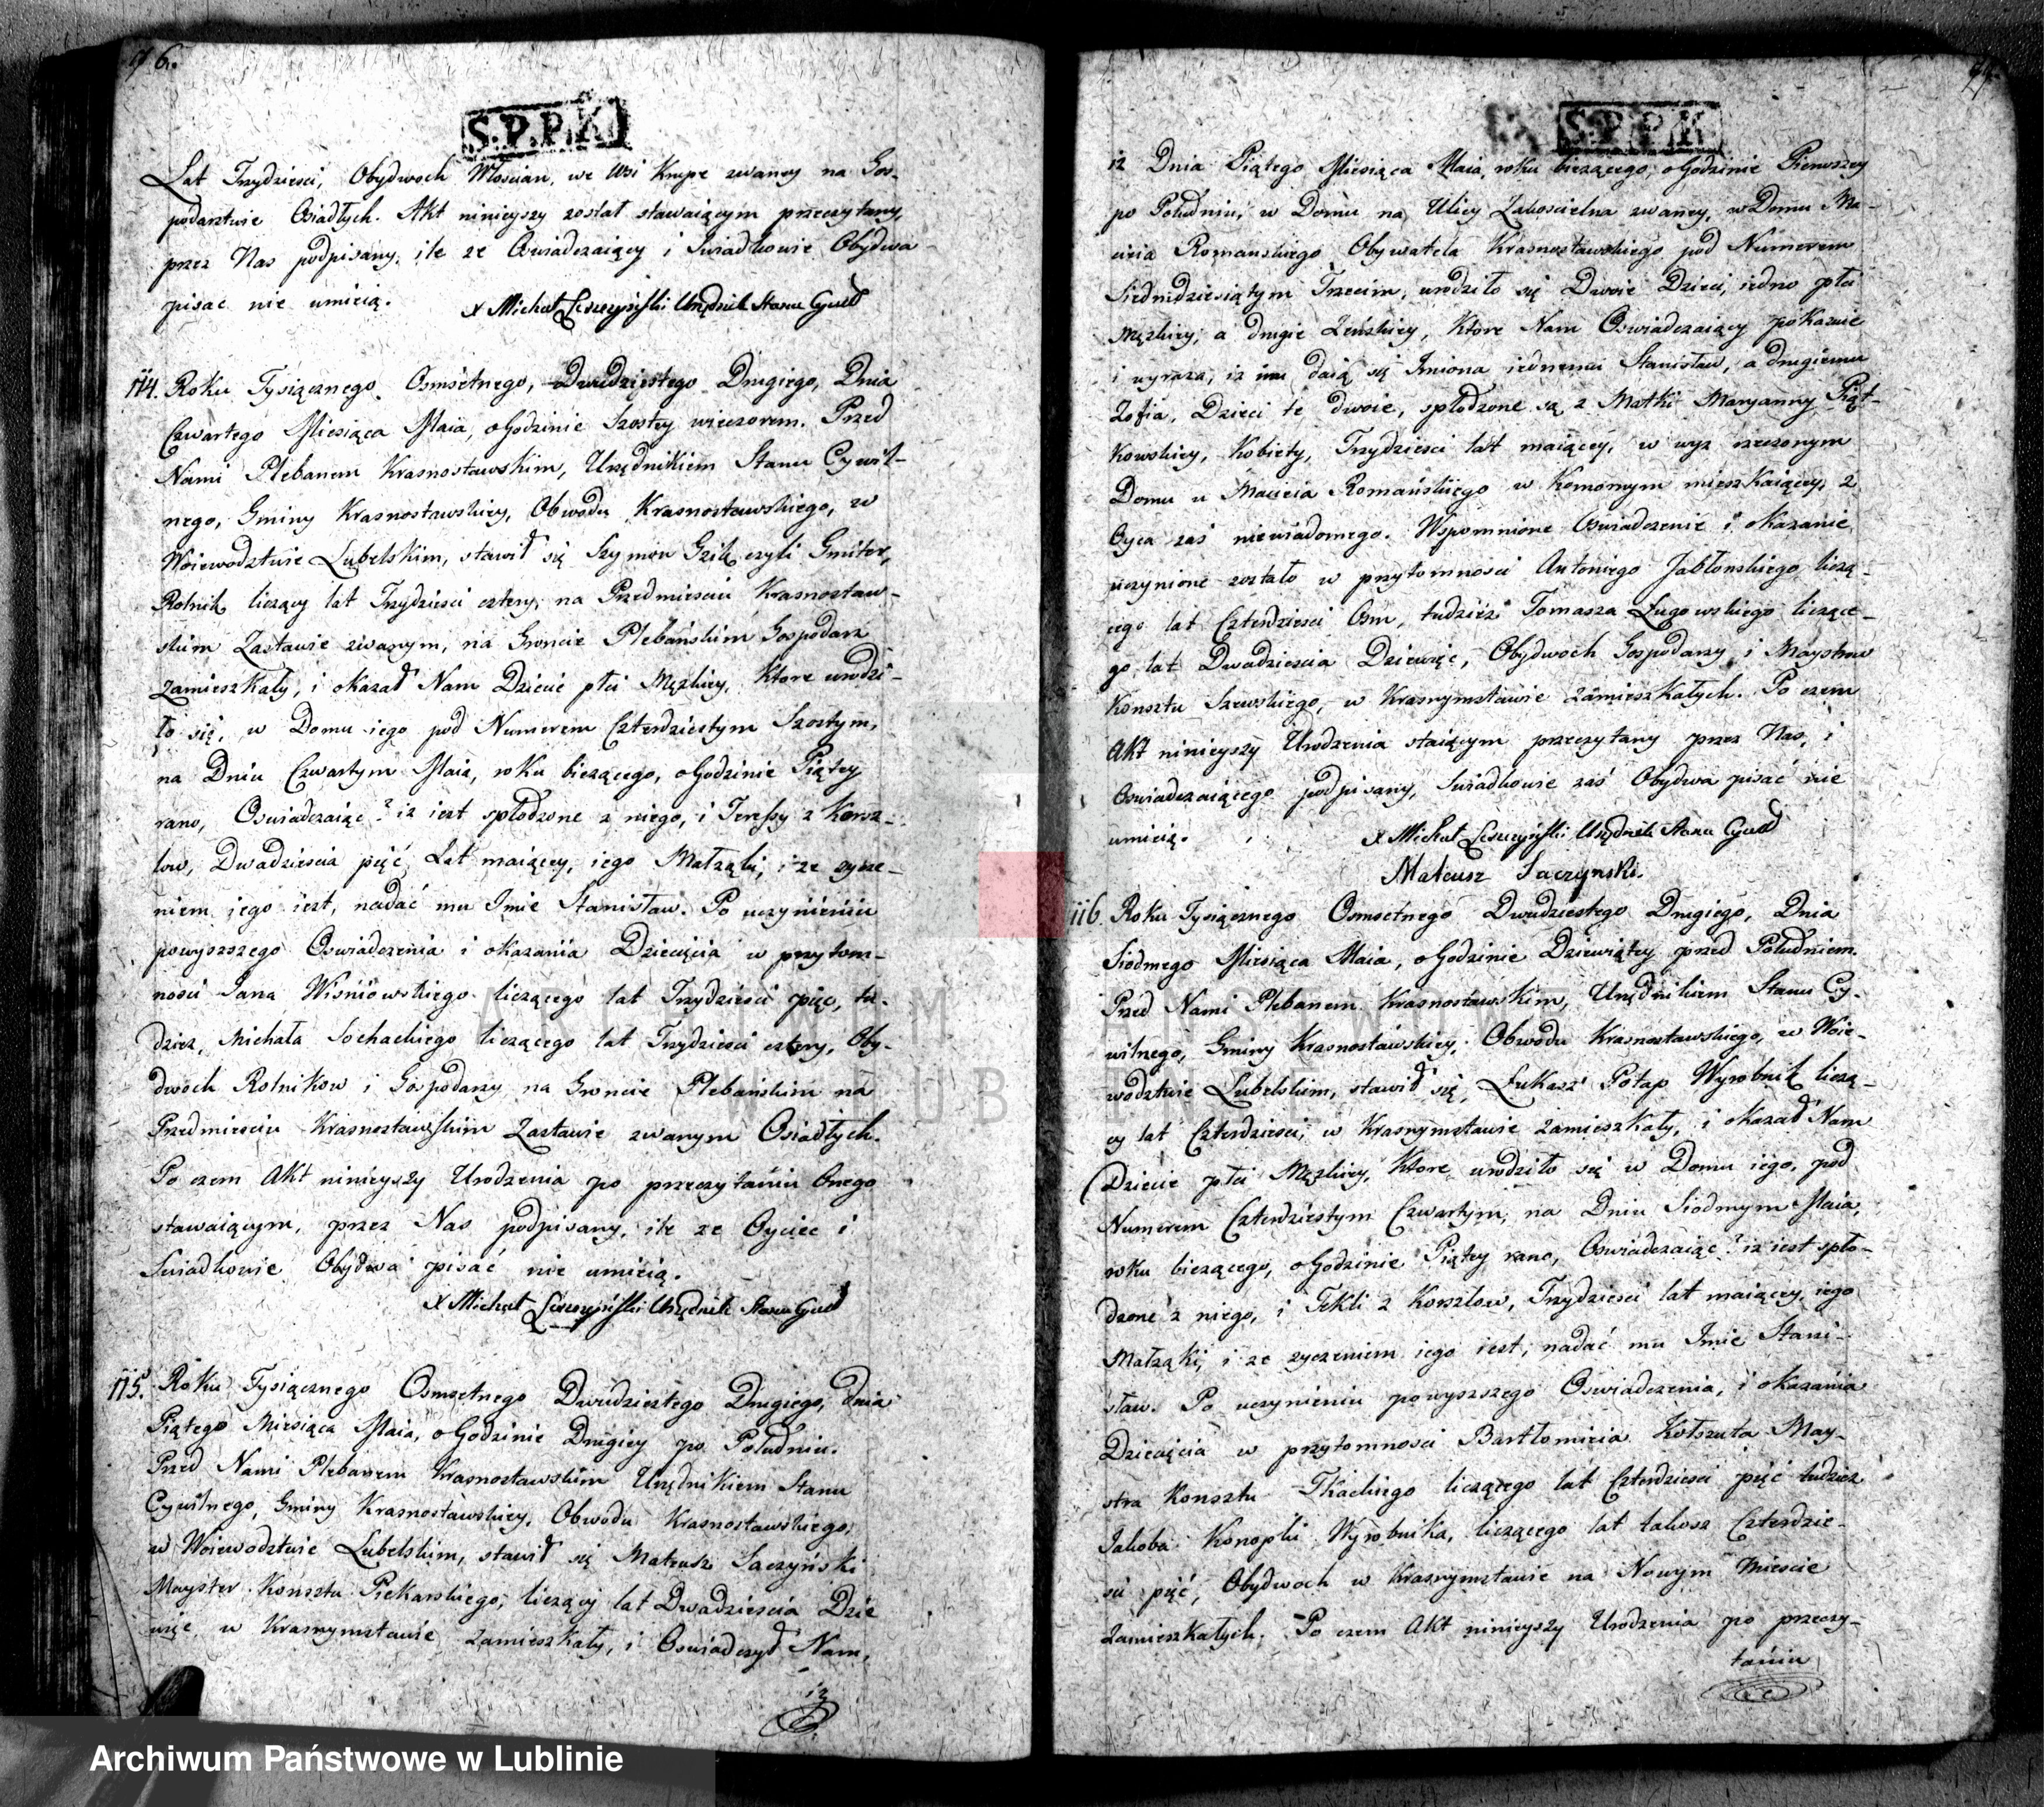 76.
S.P.P.K
Lat Trzydzieści, Obydwoch Włoscian, we Wsi Krupe zwaney na Gos-
podarstwie Osiadłych. Akt ninieyszy został stawaiącym przeczytany,
przez Nas podpisany, ile ze Oswiadczaiący i Swiadkowie Obydwa
pisac nie umieią. X Michał Leszczyński Urzędnik Stanu Cywil
114. Roku Tysiącznego Osmsetnego, Dwudziestego Drugiego, Dnia
Czwartego Miesiąca Maia, o Godzinie Szostey wieczorem. Przed
Nami Plebanem Krasnostawskim, Urzędnikiem Stanu Cywil-
nego, Gminy Krasnostawskiey, Obwodu Krasnostawskiego, w
Woiewodztwie Lubelskim, stawił się Szymon Gzik czyli Gmiter,
Rolnik liczący lat Trzydzieści cztery, na Przedmieściu Krasnostaw-
skim Zastawie zwanym, na Gruncie Plebańskim Gospodarz
zamieszkały, i okazał Nam Dziecie płci Męzkiey, Ktore urodzi-
ło się, w Domu iego pod Numerem Czterdziestym Szostym,
na Dniu Czwartym Maia, roku bieżącego, o Godzinie Piątey
rano, Oswiadczaiąc? iz iest spłodzone z niego, i Teressy z Korsz-
low, Dwadzieścia pięć Lat maiącey, iego Małząki, i ze zycze-
niem iego iest, nadać mu Imie Stanisław. Po uczynieniu
powyszszego Oswiadczenia i okazania Dziecięcia w przytom-
ności Jana Wiśniowskiego liczącego lat Trzydzieści pięc, tu-
dziez, Michała Sochackiego liczącego lat Trzydzieści cztery, Oby-
dwoch Rolnikow i Gospodarzy na Gruncie Plebańskim na
Przedmieściu Krasnostawskim Zastawie zwanym Osiadłych.
Po czem Akt ninieyszy Urodzenia po przeczytaniu Onego
stawaiącym, przez Nas podpisany, ile ze Oyciec i
Swiadkowie Obydwa pisać nie umieią.
X Michał Leszczyński Urzędnik Stanu Cywil
115. Roku Tysiącznego Osmsetnego Dwudziestego Drugiego, dnia
Piątego Miesiąca Maia, o Godzinie Drugiey po Południu.
Przed Nami Plebanem Krasnostawskim Urzędnikiem Stanu
Cywilnego, Gminy Krasnostawskiey, Obwodu Krasnostawskiego,
w Woiewodztwie Lubelskim, stawił się Mateusz Saczyński
Mayster Konsztu Piekarskiego, liczący lat Dwadzieścia Dzie
więc, w Krasnymstawie zamieszkały, i Oswiadczył Nam,
iz
77.
S.P.P.K
iz Dnia Piątego Miesiąca Maia, roku bieżącego, o Godzinie Pierwszey
po Południu, w Domu na Ulicy Zakoscielna zwaney, w Domu Ma-
cieia Romanskiego Obywatela Krasnostawskiego pod Numerem
Siedmdziesiątym Trzecim, urodziło się Dwoie Dzieci, iedno płci
Męzkiey, a drugie Zeńskiey, Ktore Nam Oswiadczaiący pokazuie
i wyraza, iz im daią się Imiona iednemu Stanisław, a drugiemu
Zofia, Dzieci te dwoie, spłodzone są z Matki Maryanny Piąt-
kowskiey, Kobiety, Trzydzieści lat maiącey, w wyz rzeczonym
Domu u Macieia Romańskiego w Komornym mieszkaiącey, z
Oyca zaś niewiadomego. Wspomnione Oswiadczenie i okazanie
uczynione zostało w przytomnosci Antoniego Jabłonskiego liczą-
cego lat Czterdzieści Osm, tudzież Tomasza Ługowskiego liczące-
go lat Dwadzieścia Dziewięc, Obydwoch Gospodarzy i Maystrow
Konsztu Szewskiego, w Krasnymstawie zamieszkałych. Po czem
Akt ninieyszy Urodzenia staiącym przeczytany przez Nas, i
Oswiadczaiącego podpisany, Swiadkowie zaś Obydwa pisać nie
umieią. X Michał Leszczyński Urzędnik Stanu Cywil
Mateusz Saczynski.
116. Roku Tysiącznego Osmsetnego Dwudziestego Drugiego, Dnia
Siodmego Miesiąca Maia, o Godzinie Dziewiątey przed Południem.
Przed Nami Plebanem Krasnostawskim, Urzędnikiem Stanu Cy-
wilnego, Gminy Krasnostawskiey, Obwodu Krasnostawskiego, w Woie-
wodztwie Lubelskim, stawił się, Łukasz Potap Wyrobnik liczą-
cy lat Czterdzieści, w Krasnymstawie zamieszkały, i okazał Nam
Dziecie płci Męzkiey, Ktore urodziło się w Domu iego, pod
Numerem Czterdziestym Czwartym, na Dniu Siodmym Maia,
roku bieżącego, o Godzinie Piątey rano, Oswiadczaiąc? iz iest spło-
dzone z niego, i Tekli z Korszlow, Trzydzieści lat maiącey, iego
Małząki, i ze zyczeniem iego iest, nadać mu Imie Stani-
sław. Po uczynieniu powyszszego Oswiadczenia, i okazania
Dziecięcia w przytomnosci Bartłomieia Kołszuta May-
stra Konsztu Tkackiego liczącego lat Czterdzieści pięć tudziez
Jakoba Konopki Wyrobnika, liczącego lat takosz Czterdzie-
ści pięć, Obydwoch w Krasnymstawie na Nowym Mieście
zamieszkałych. Po czem Akt ninieyszy Urodzenia po przeczy-
taniu
ARCHIWUM PAŃSTWOWE
W LUBLINIE
Archiwum Państwowe w Lublinie